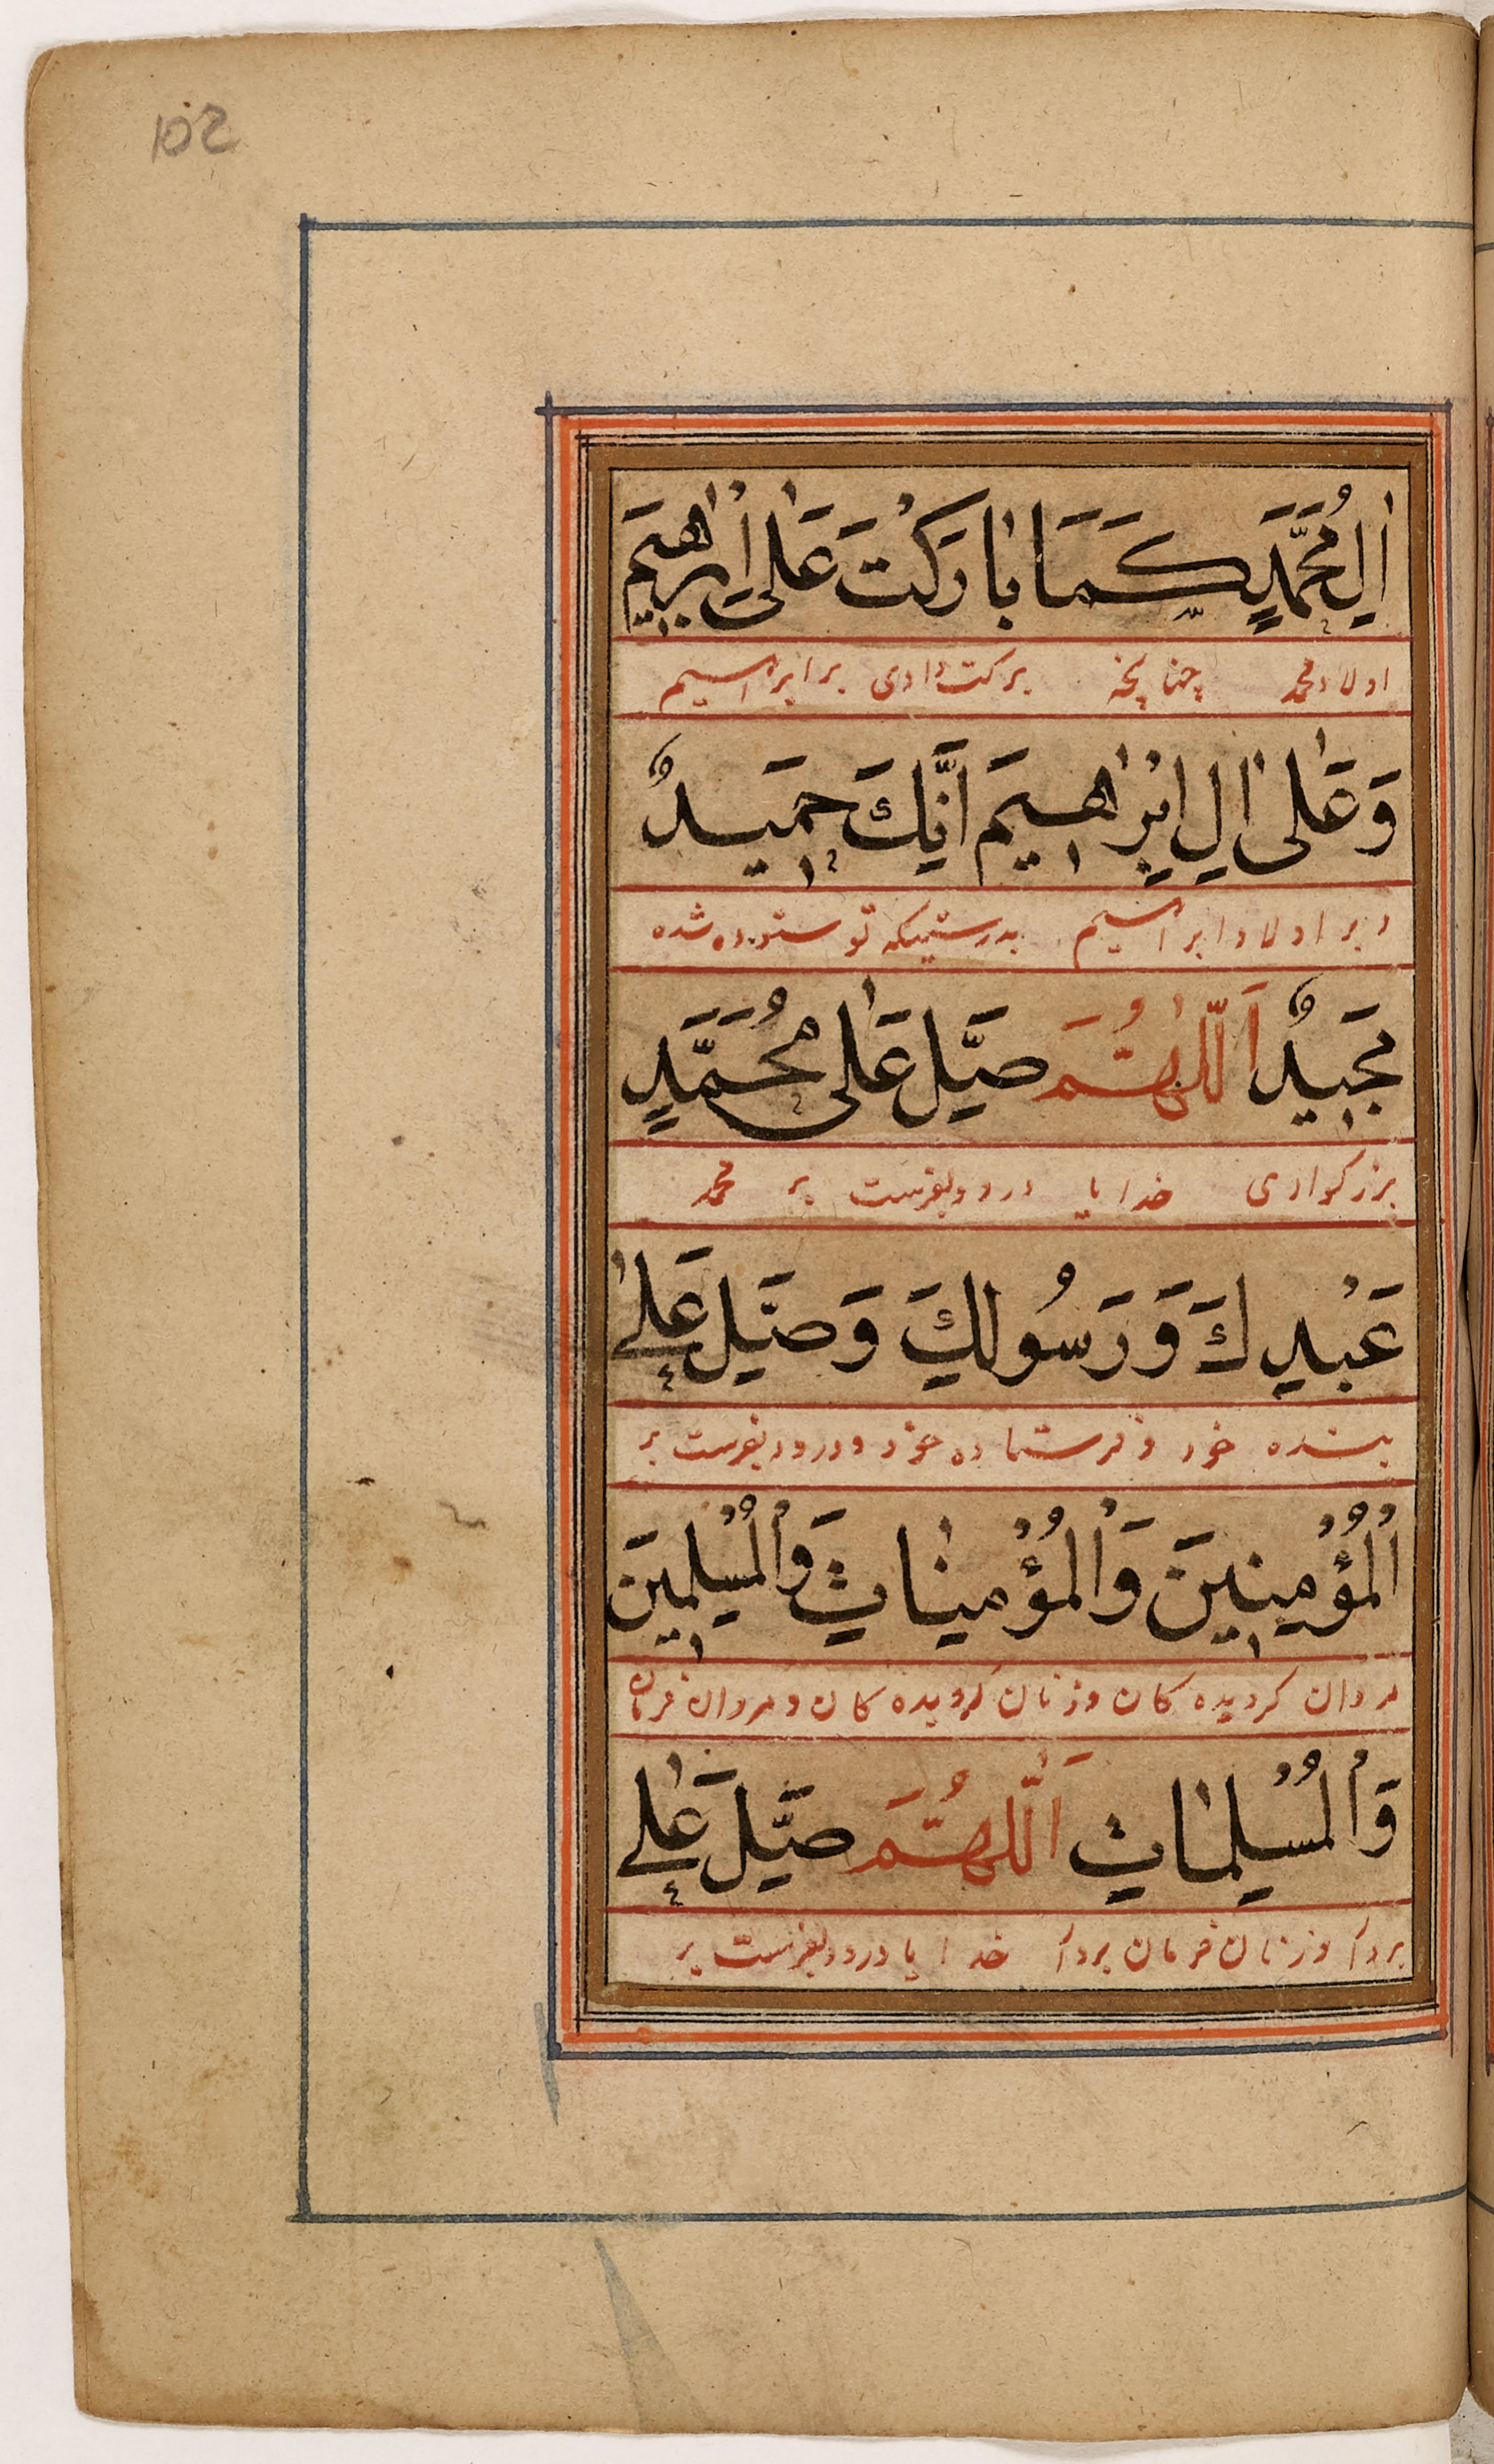 102
اٰلِ مُحَمَّدٍ كَمَا بَارَكْتَ عَلٰى اِبْرٰاهِيمَ
اولاد محمد چنانچه بركت دادى بر ابراهيم
وَعَلٰى اٰلِ اِبْرٰاهِيمَ اِنَّكَ حَمِيدٌ
و بر اولاد ابراهيم بدرستيكه تو ستوده شده
مَجِيدٌ اَللّٰهُمَّ صَلِّ عَلٰى مُحَمَّدٍ
بزرگوارى خدايا درود بفرست بر محمد
عَبْدِكَ وَرَسُولِكَ وَصَلِّ عَلٰى
بنده خود و فرستاده خود و درود بفرست بر
الْمُؤْمِنِينَ وَالْمُؤْمِنٰاتِ وَالْمُسْلِمِينَ
مردان كرديده كان و زنان كرويده كان و مردان فرمان
وَالْمُسْلِمٰاتِ اَللّٰهُمَّ صَلِّ عَلٰى
بردار و زنان فرمان بردار خدايا درود بفرست بر